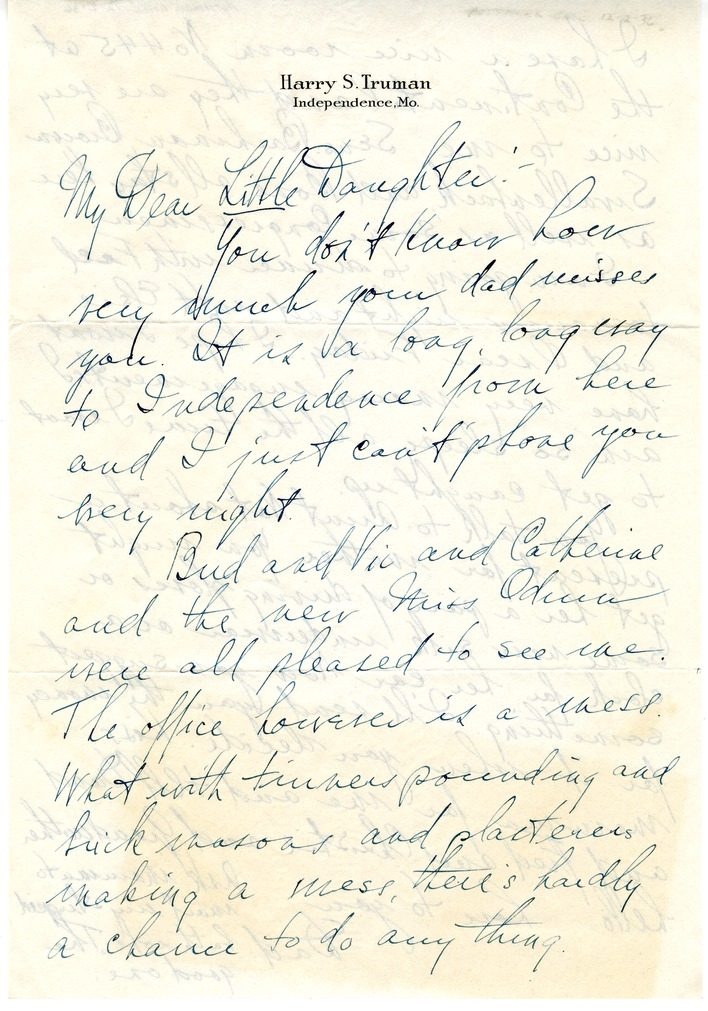 Harry S. Truman
Independence, Mo.
My Dear Little Daughter:-
You don't know how
very much your dad misses
you. It is a long, long way
to Independence from here
and I just can't phone you
very night.
Bud and Vic and Catherine
and the new Miss Odum
were all pleased to see me.
The office however is a mess.
What with tinners pounding and
brick masons and plasterers
making a mess, there's hardly
a chance to do any thing.